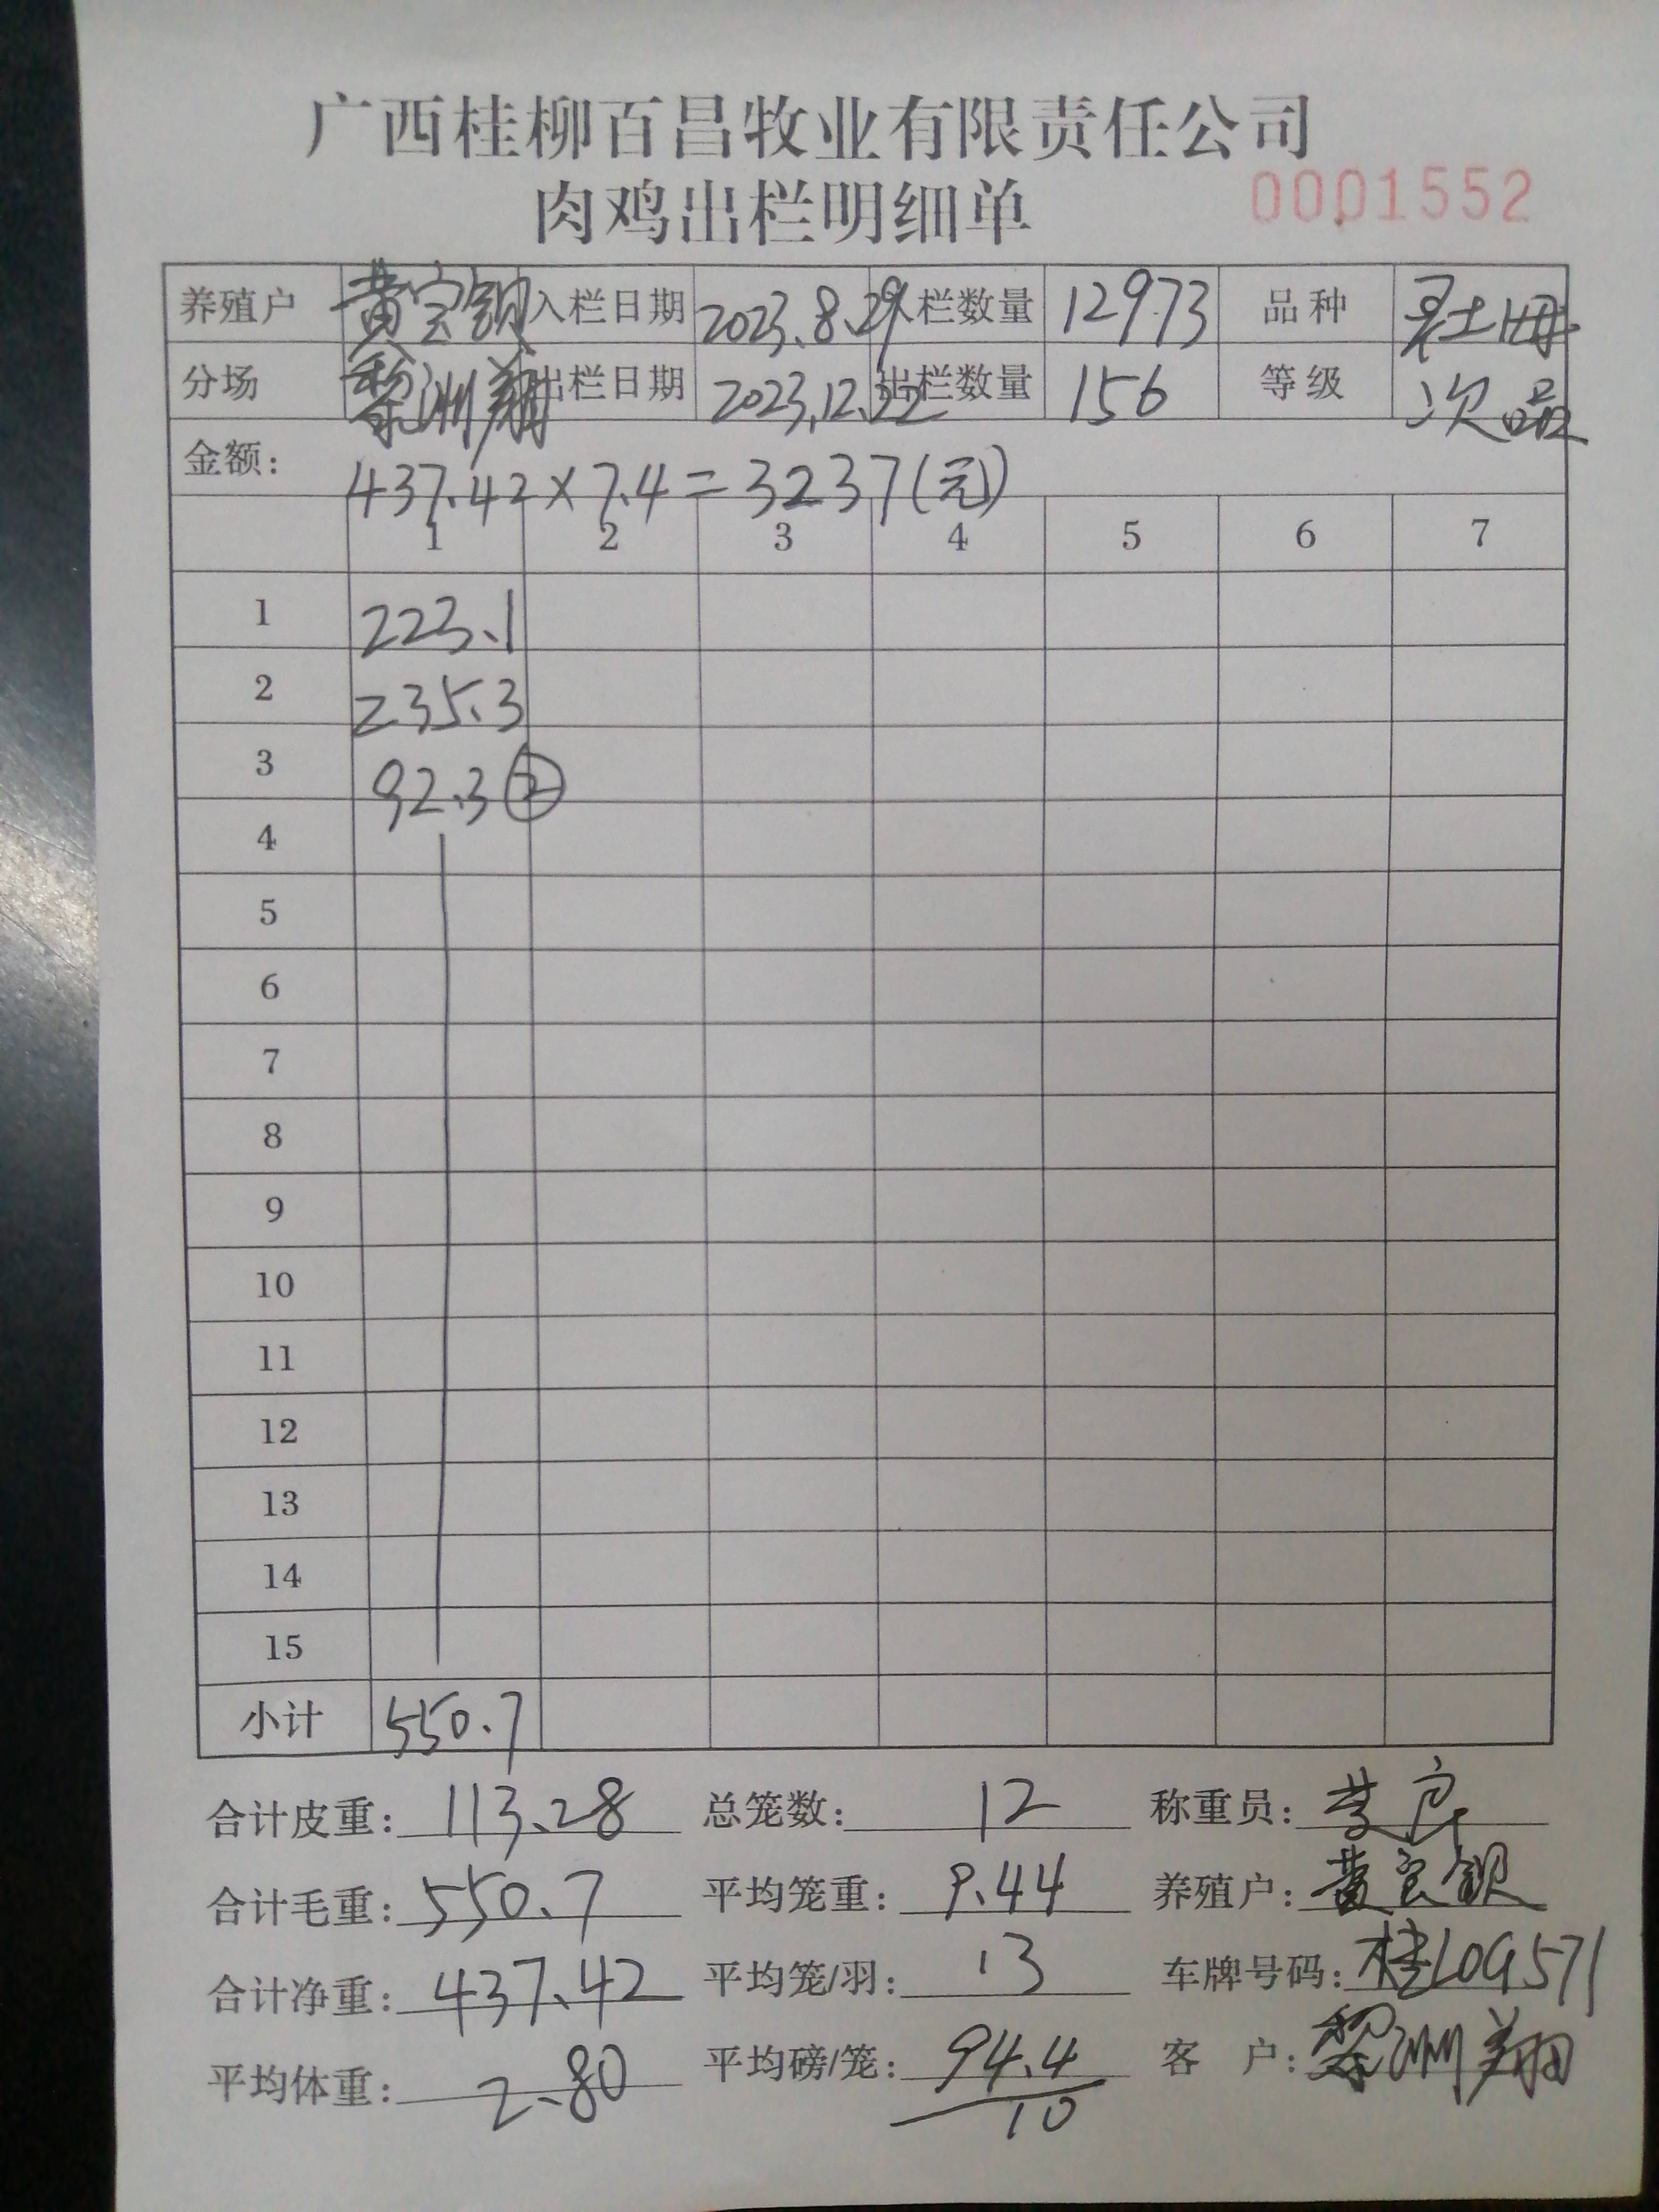 广西桂柳百昌牧业有限责任公司
肉鸡出栏明细单
0001552
养殖户 黄宝银 入栏日期 2023.8.29 入栏数量 12973 品种 土母
分场 黎洲翔 出栏日期 2023.12.22 出栏数量 156 等级 次品
金额: 437.42×7.4=3237(元)
1 2 3 4 5 6 7
1 223.1
2 235.3
3 92.3 ②
4
5
6
7
8
9
10
11
12
13
14
15
小计 550.7
合计皮重: 113.28 总笼数: 12 称重员:
合计毛重: 550.7 平均笼重: 9.44 养殖户: 黄宝银
合计净重: 437.42 平均笼/羽: 13 车牌号码: 桂L09571
平均体重: 2.80 平均磅/笼: 94.4 客 户: 黎洲翔
10